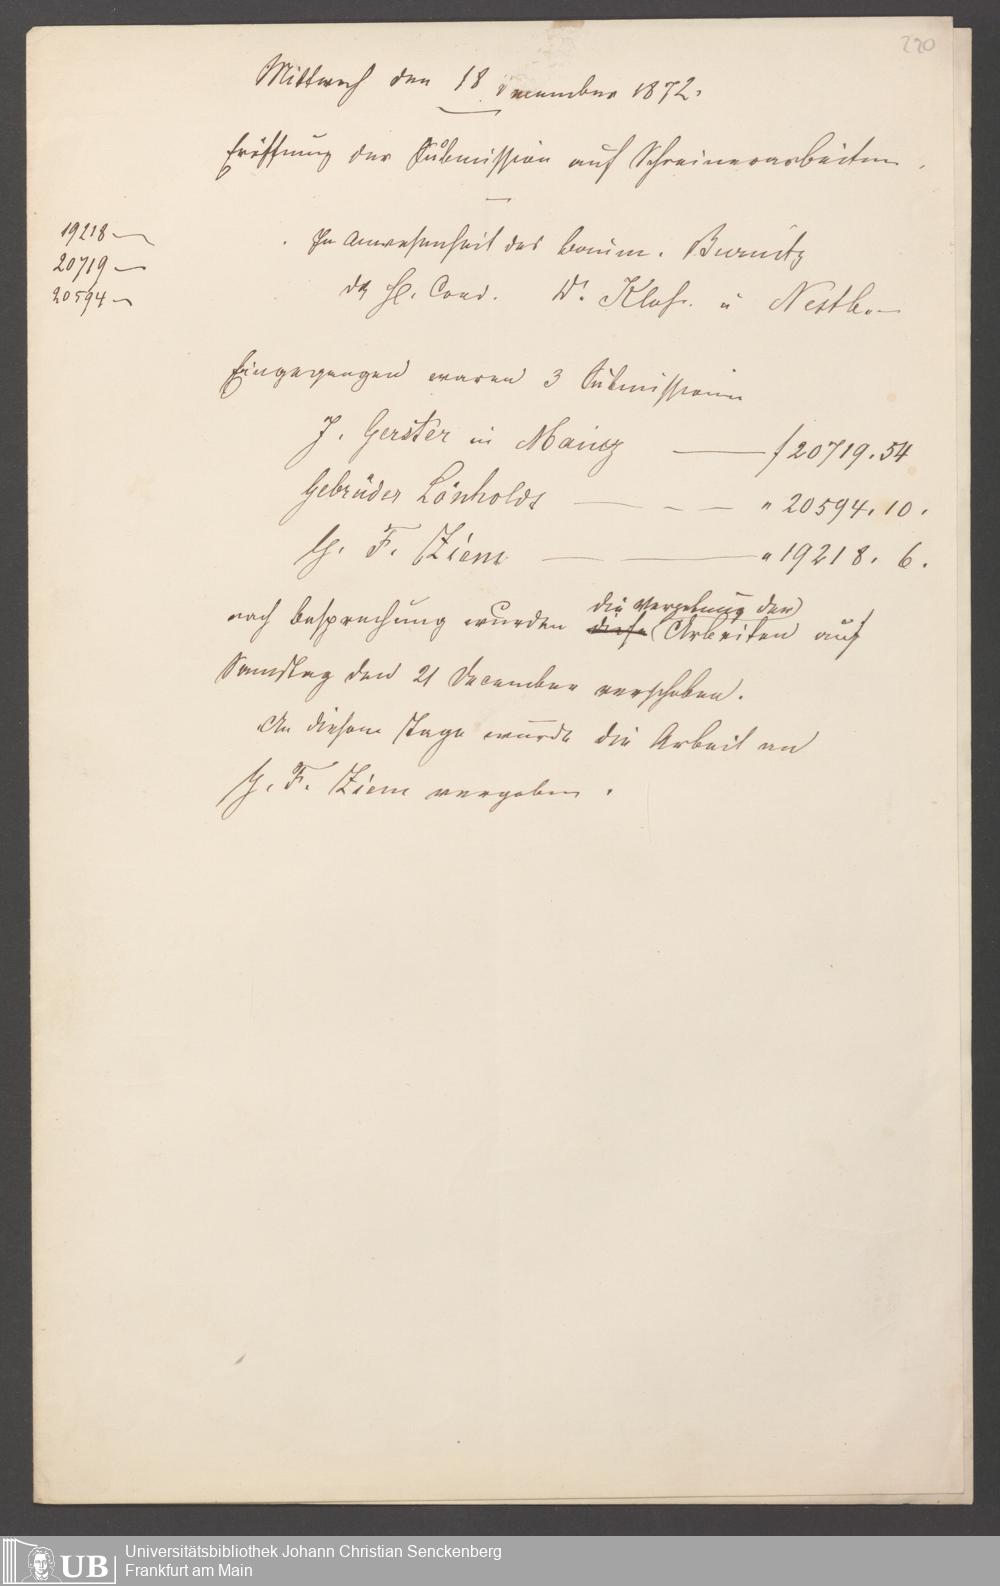 220
Mittwoch den 18 December 1872.
Eröffnung der Submission auf Schreinerarbeiten.
19218
20719
20594
In Anwesenheit des Baum. Burnitz
d. H. Cons. Dr. Kloß. u
Eingegangen waren 3 Submissionen
J. Gerster in Mainz f 20719.54
Gebrüder Lönholdt " 20594.10.
G. F. Ziem " 19218. 6.
die Vergebung der
nach Besprechung wurden diese Arbeiten auf
Samstag den 21 December verschoben.
An diesem Tage wurde die Arbeit an
G. F. Ziem vergeben.
UB
Universitätsbibliothek Johann Christian Senckenberg
Frankfurt am Main